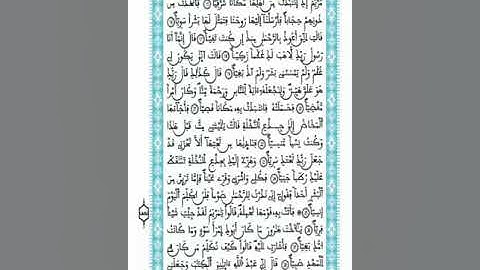 مريم إذ انتبذت من أهلها مكانا شرقيا فاتخذت من
دونهم حجابا فأرسلنا إليها روحنا فتمثل لها بشرا سويا
قالت إني أعوذ بالرحمن منك إن كنت تقيا قال إنما أنا
رسول ربك لأهب لك غلما زكيا قالت أنى يكون لي
غلم ولم يمسسني بشر ولم أك بغيا قال كذلك قال ربك
هو علي هين ولنجعله ءاية للناس ورحمة منا وكان أمرا
مقضيا فحملته فانتبذت به مكانا قصيا فأجاءها
المخاض إلى جذع النخلة قالت يليتني مت قبل هذا
وكنت نسيا منسيا فناديها من تحتها ألا تحزني قد
جعل ربك تحتك سريا وهزي إليك بجذع النخلة تسقط
عليك رطبا جنيا فكلي واشربي وقري عينا فإما ترين من
البشر أحدا فقولي إني نذرت للرحمن صوما فلن أكلم اليوم
إنسيا فأتت به قومها تحمله قالوا يمريم لقد جئت شيئا
فريا يأخت هرون ما كان أبوك امرأ سوء وما كانت
أمك بغيا فأشارت إليه قالوا كيف نكلم من كان في
المهد صبيا قال إني عبد الله ءاتيني الكتب وجعلني